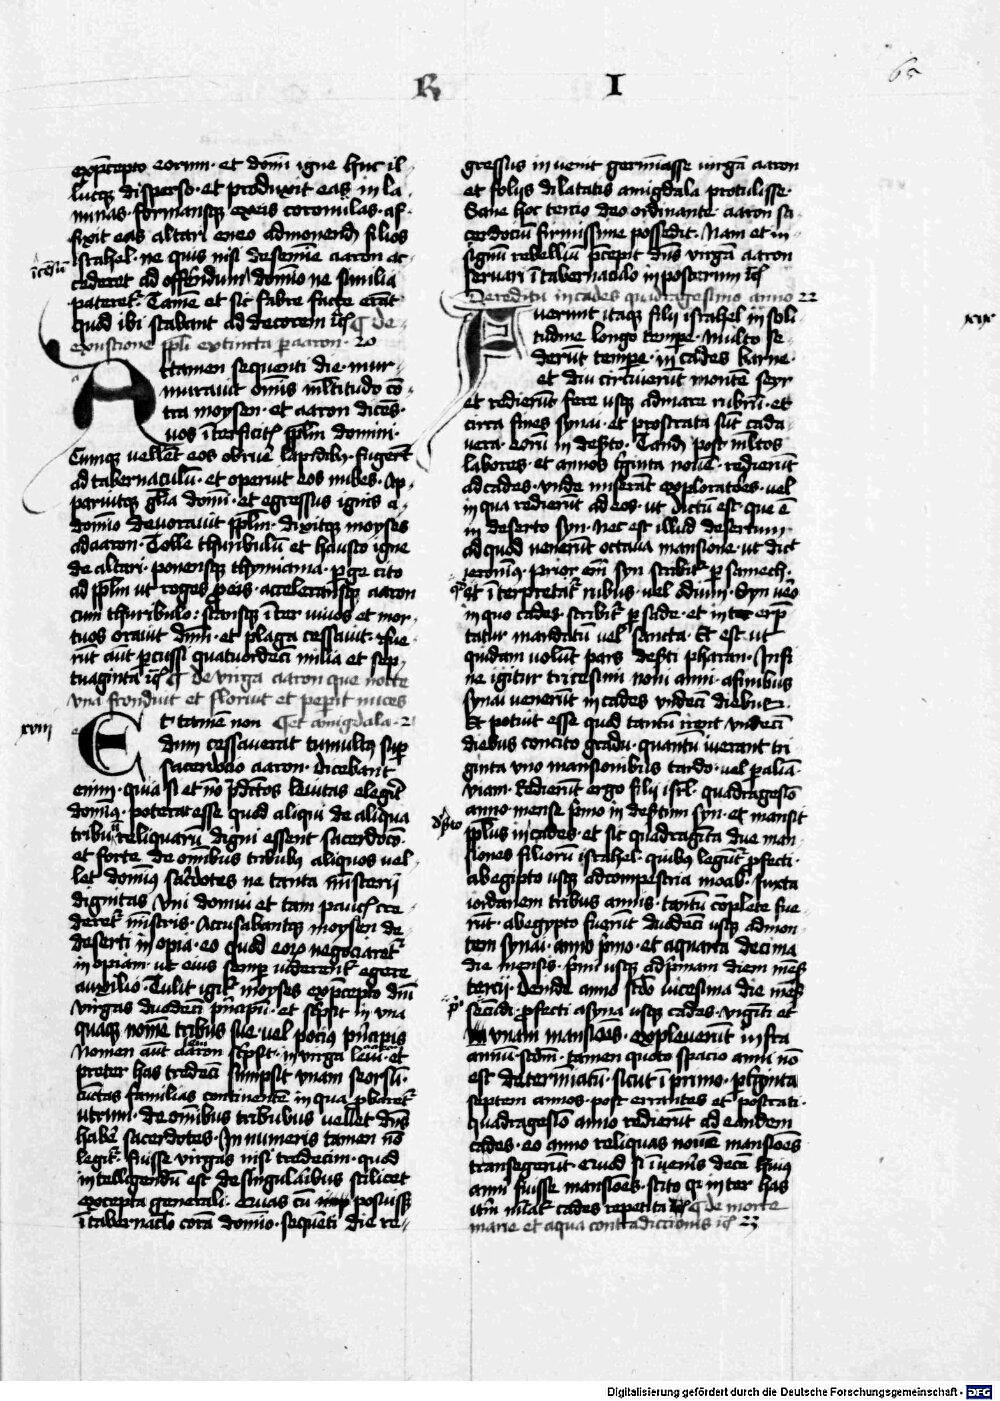 R I
65
expcepto eorum · et domi igne huc il
lucqz disperso · et produxit eas in la
minas · formansqz exeis coronulas · af
fixit eas altari eneo admonendi filios
israhel · ne quis nisi desemie aaron ac
cederet ad offendum domio ne similia
pateret · Tame et sic fabre facte erat
quod ibi stabant ad decorem
exustione ppli extincta p aaron · 20
Attamen sequenti die · mur
muravit omis multitudo co
tra moysen · et aaron dices ·
vos iterficit pplm domini ·
Cumqz vellet eos obrue lapidib · fugert
ad tabernaculu · et operuit eos nubes · Ap
paruitqz glia domi · et egressus ignis a
domio devoravit pplm · dixitqz moyses
ad aaron · Tolle thuribulu et hausto igne
de altari · ponensqz thymiama · pge cito
ad pplm ut roges p eis · acceleransqz aaron
cum thuribulo : stansqz iter vivos et mor
tuos oravit dnm · et plaga cessavit · fue
rut aut pcussi quatuordeci milia et sep
tuaginta de virga aaron que nocte
una fronduit et floruit et peperit nuces
xviii
Et tame non et amigdala · 21
dum cessaverat tumultus sup
sacerdocio aaron · dicebant
enim · quia si et no pdictos levitas elegit
domus · poterat esse quod aliqui de aliqua
tribu reliquaru digni essent sacerdocio ·
et forte de omibus tribubus aliquos vel
let domius sacdotes ne tanta misterii
dignitas uni domui et tam paucis cre
deret mistris · Accusabantqz moysen de
deserti inopia · eo quod eo negociaret
inopiam · ut eius semp viderent egere
auxilio · Tulit igit moyses expcepto dni
virgas duodeci pncipu · et scpsit in una
quaqz nome tribus sue · vel pocius pncipis
Nomen aut aaron scpsit · in virga levi · et
preter has tredeci sumpsit unam seorsu
cuctas familias continente in qua pbaret
utrum · de omibus tribubus vellet dns
habe sacerdotes · In numeris tamen no
legit · fuisse virgas nisi tredecim · quod
intelligendu est de singularibus scilicet
excepta generali · Quas cu posuiss
i tabernaclo cora domio · sequeti die re
gressus invenit germiasse virga aaron
et foliis dilatatis amigdala protulisse ·
Sane hoc tercio deo ordinante · aaron sa
cerdociu firmissime possedit · Nam et in
signu rebelliu pcepit dns virga aaron
servari i tabernaculo in posterum
De reditu in cades quadragesimo anno 22
xix
Fuerunt itaqz filii israhel in soli
tudine longo tempe · multo se
derut tempe · in cades barne ·
et diu circuierut monte seyr
et redierut fere usqz ad mare rubru · et
circa fines synai · et prostrata sut cada
vera · eoru in desto · Tandi post mltos
labores · et annos triginta nove · redierut
ad cades · unde miserat exploratores · vel
in qua redierut ad eos · ut dictu est · que e
in deserto syn · Nec est illud desertum ·
ad quod venerut octava mansione · ut dicit
jeronimus · prior em syn scribit p samech ·
Et iterpretat rubus · vel odium · Syn vero
in quo cades · scribit p sade · et interp
tatur mandatu vel sancta · Et est ut
quidam volut pars deserti pharan · In fi
ne igitur tricesimi noni anni · a finibus
synai venerut in cades undeci diebus ·
Et potuit esse quod tantu irent undeci
diebus concito gradu · quantu iverant tri
ginta uno mansionibus tardo · vel p alia
viam · Redierut ergo filii isrl · quadragesio
anno · mense pimo in destum syn · et mansit
pplus in cades · et sic quadraginta due man
siones filioru israhel · quibus legut pfecti ·
ab egipto usqz ad compestria moab · Juxta
iordanem tribus annis · tantu complete fue
rut · ab egypto fuerut duodeci usqz ad mon
tem synai · anno pimo · et a quarta decima
die mensis · pimi usqz ad piman diem mes
tercii · Deinde anno scdo vicesima die mes
secudi · pfecti a syna usqz cades · viginti et
unam mansioes · expleverut infra
annu scdm · tamen quoto spacio anni no
est determiatu · sicut i primo · p triginta
septem annos · post errantes et postrati ·
quadragesio anno redierut ad eandem
cades · eo anno reliquas nove mansioes
transegerut Quod si iveis dece huius
anni fuisse mansioes · scito qr inter has
cades repetita de morte
marie et aqua contradictionis 23